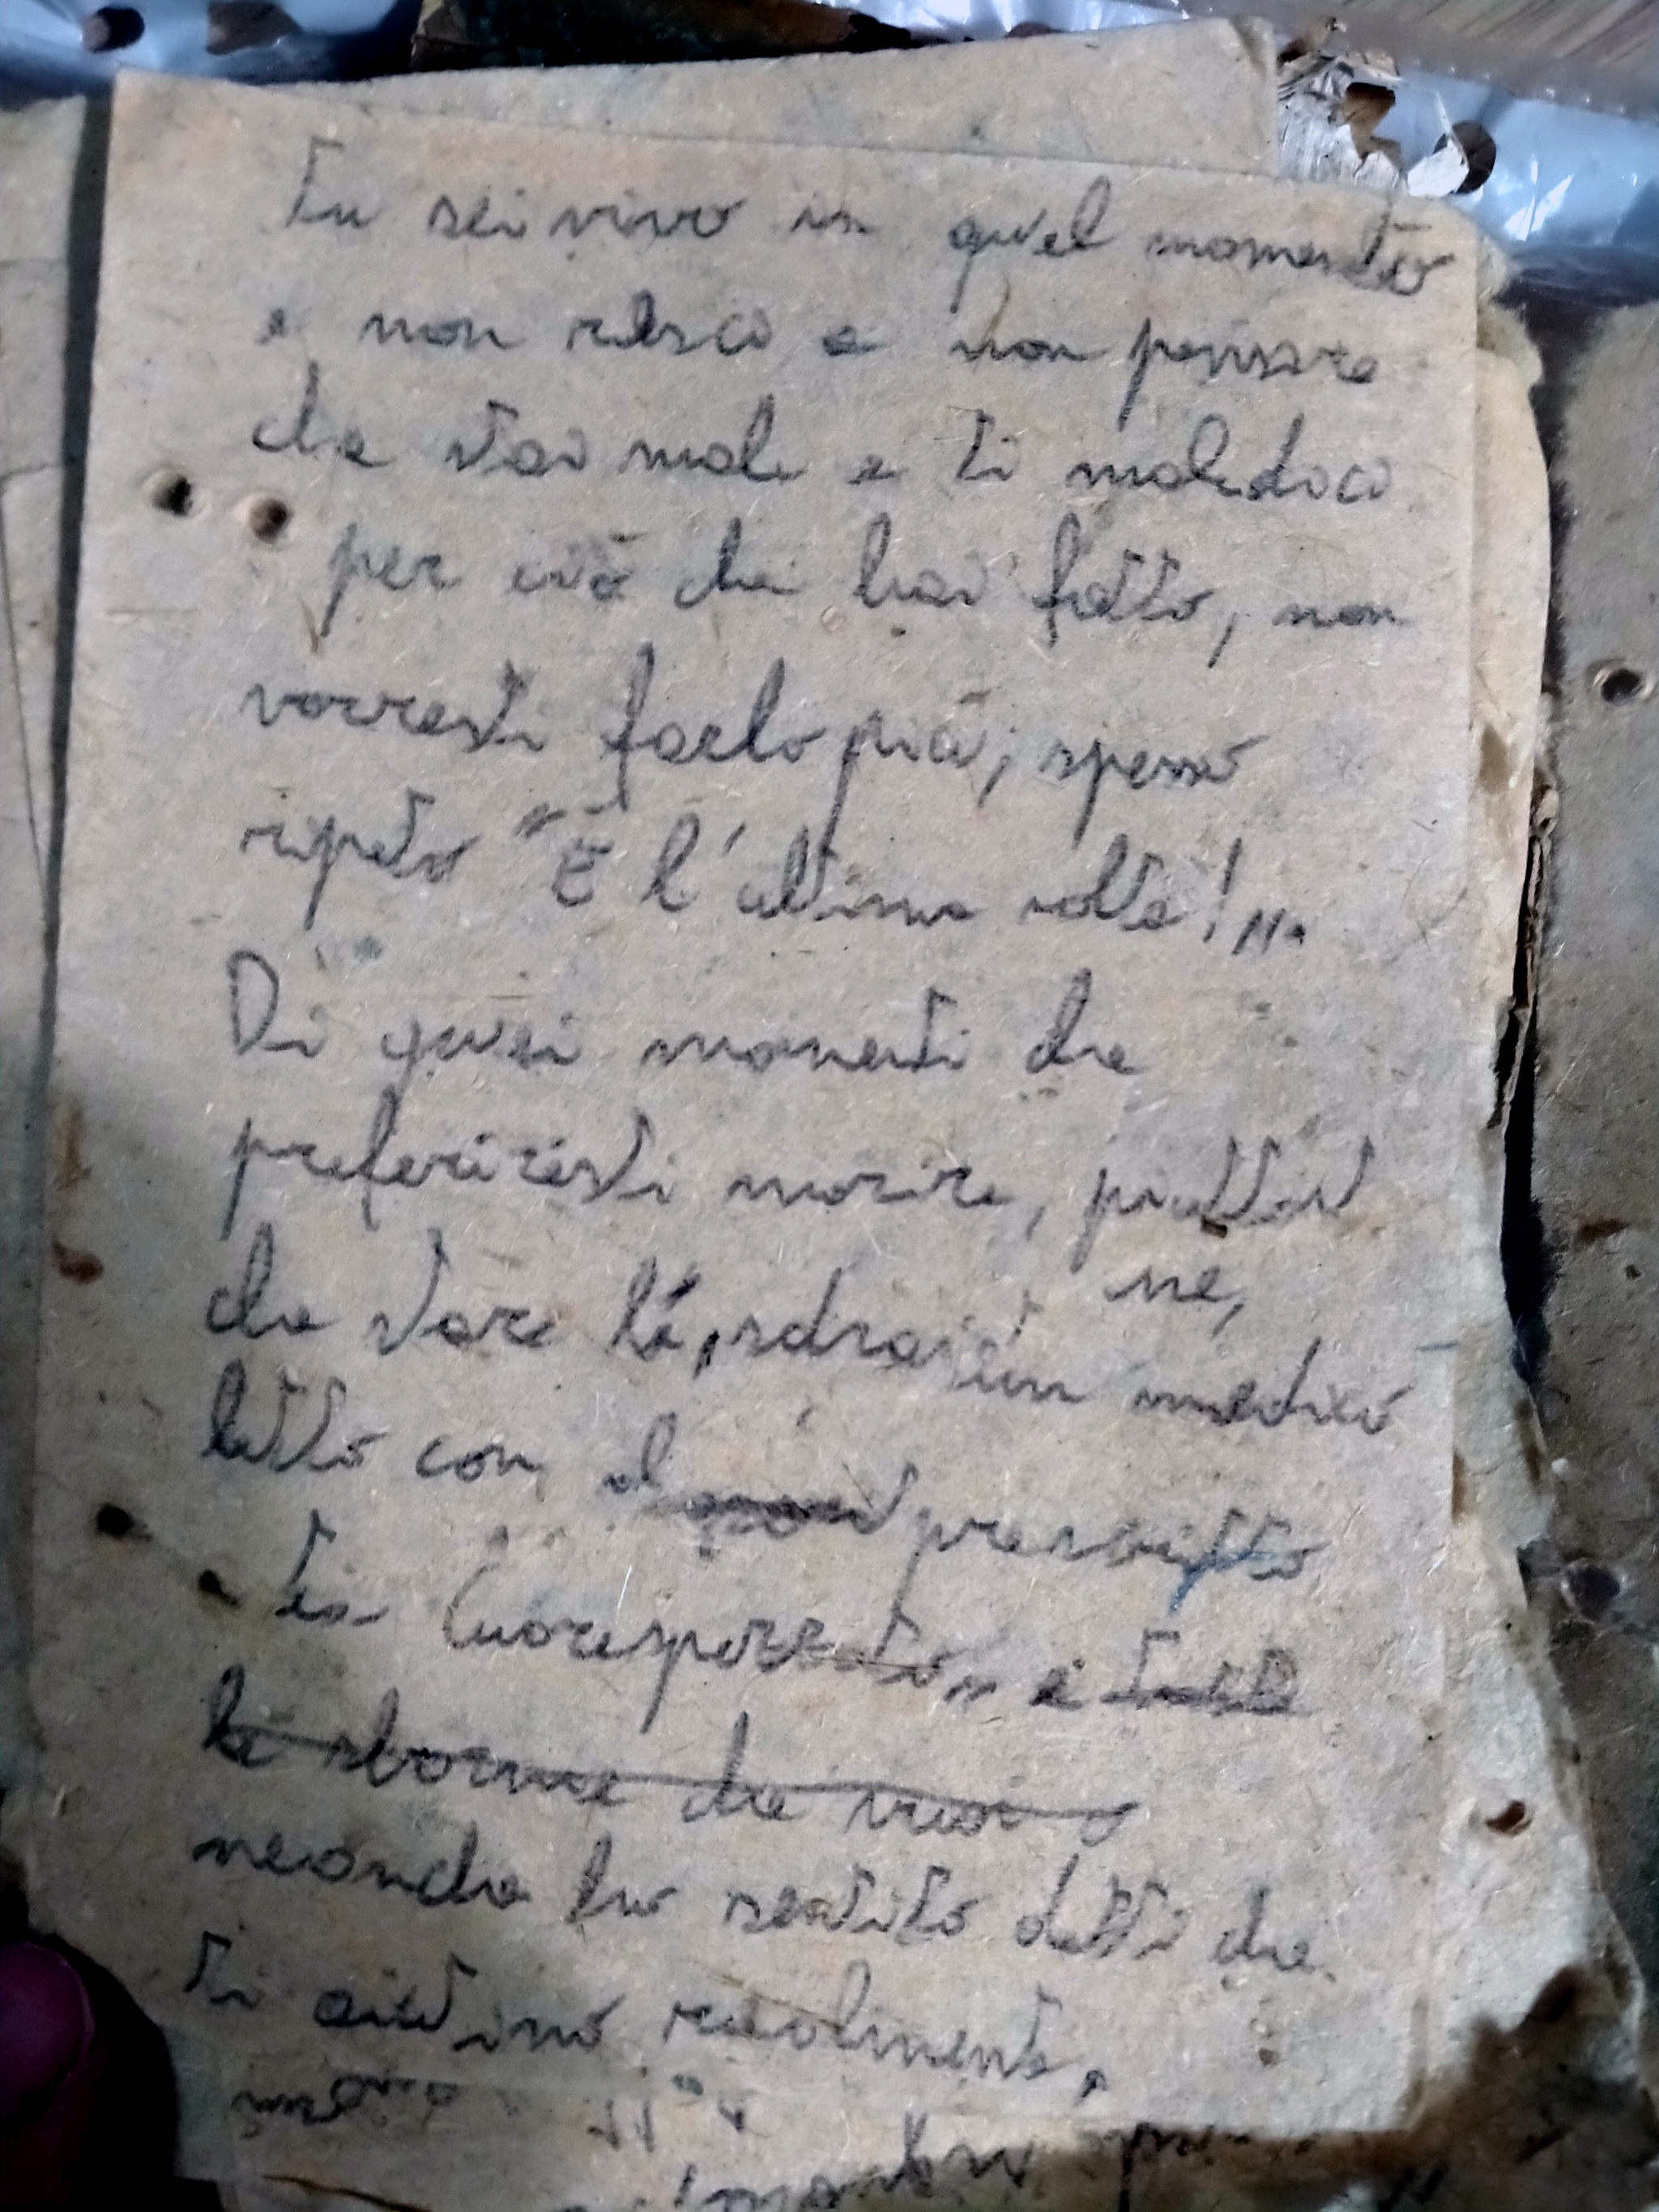 Tu sei vivo in quel momento
e non riesci a non pensare
che stai male e ti maledici
per ciò che hai fatto, non
vorresti farlo più; spesso
ripeto "È l'ultima volta!".
Di quei momenti che
preferiresti morire, piuttost
che stare lì, sdraiato
ne, medico
letto con il prescritto
Cuorespezzato" e
le sbornie che
neanche ho sentito detti che
ti aiutino realmente,